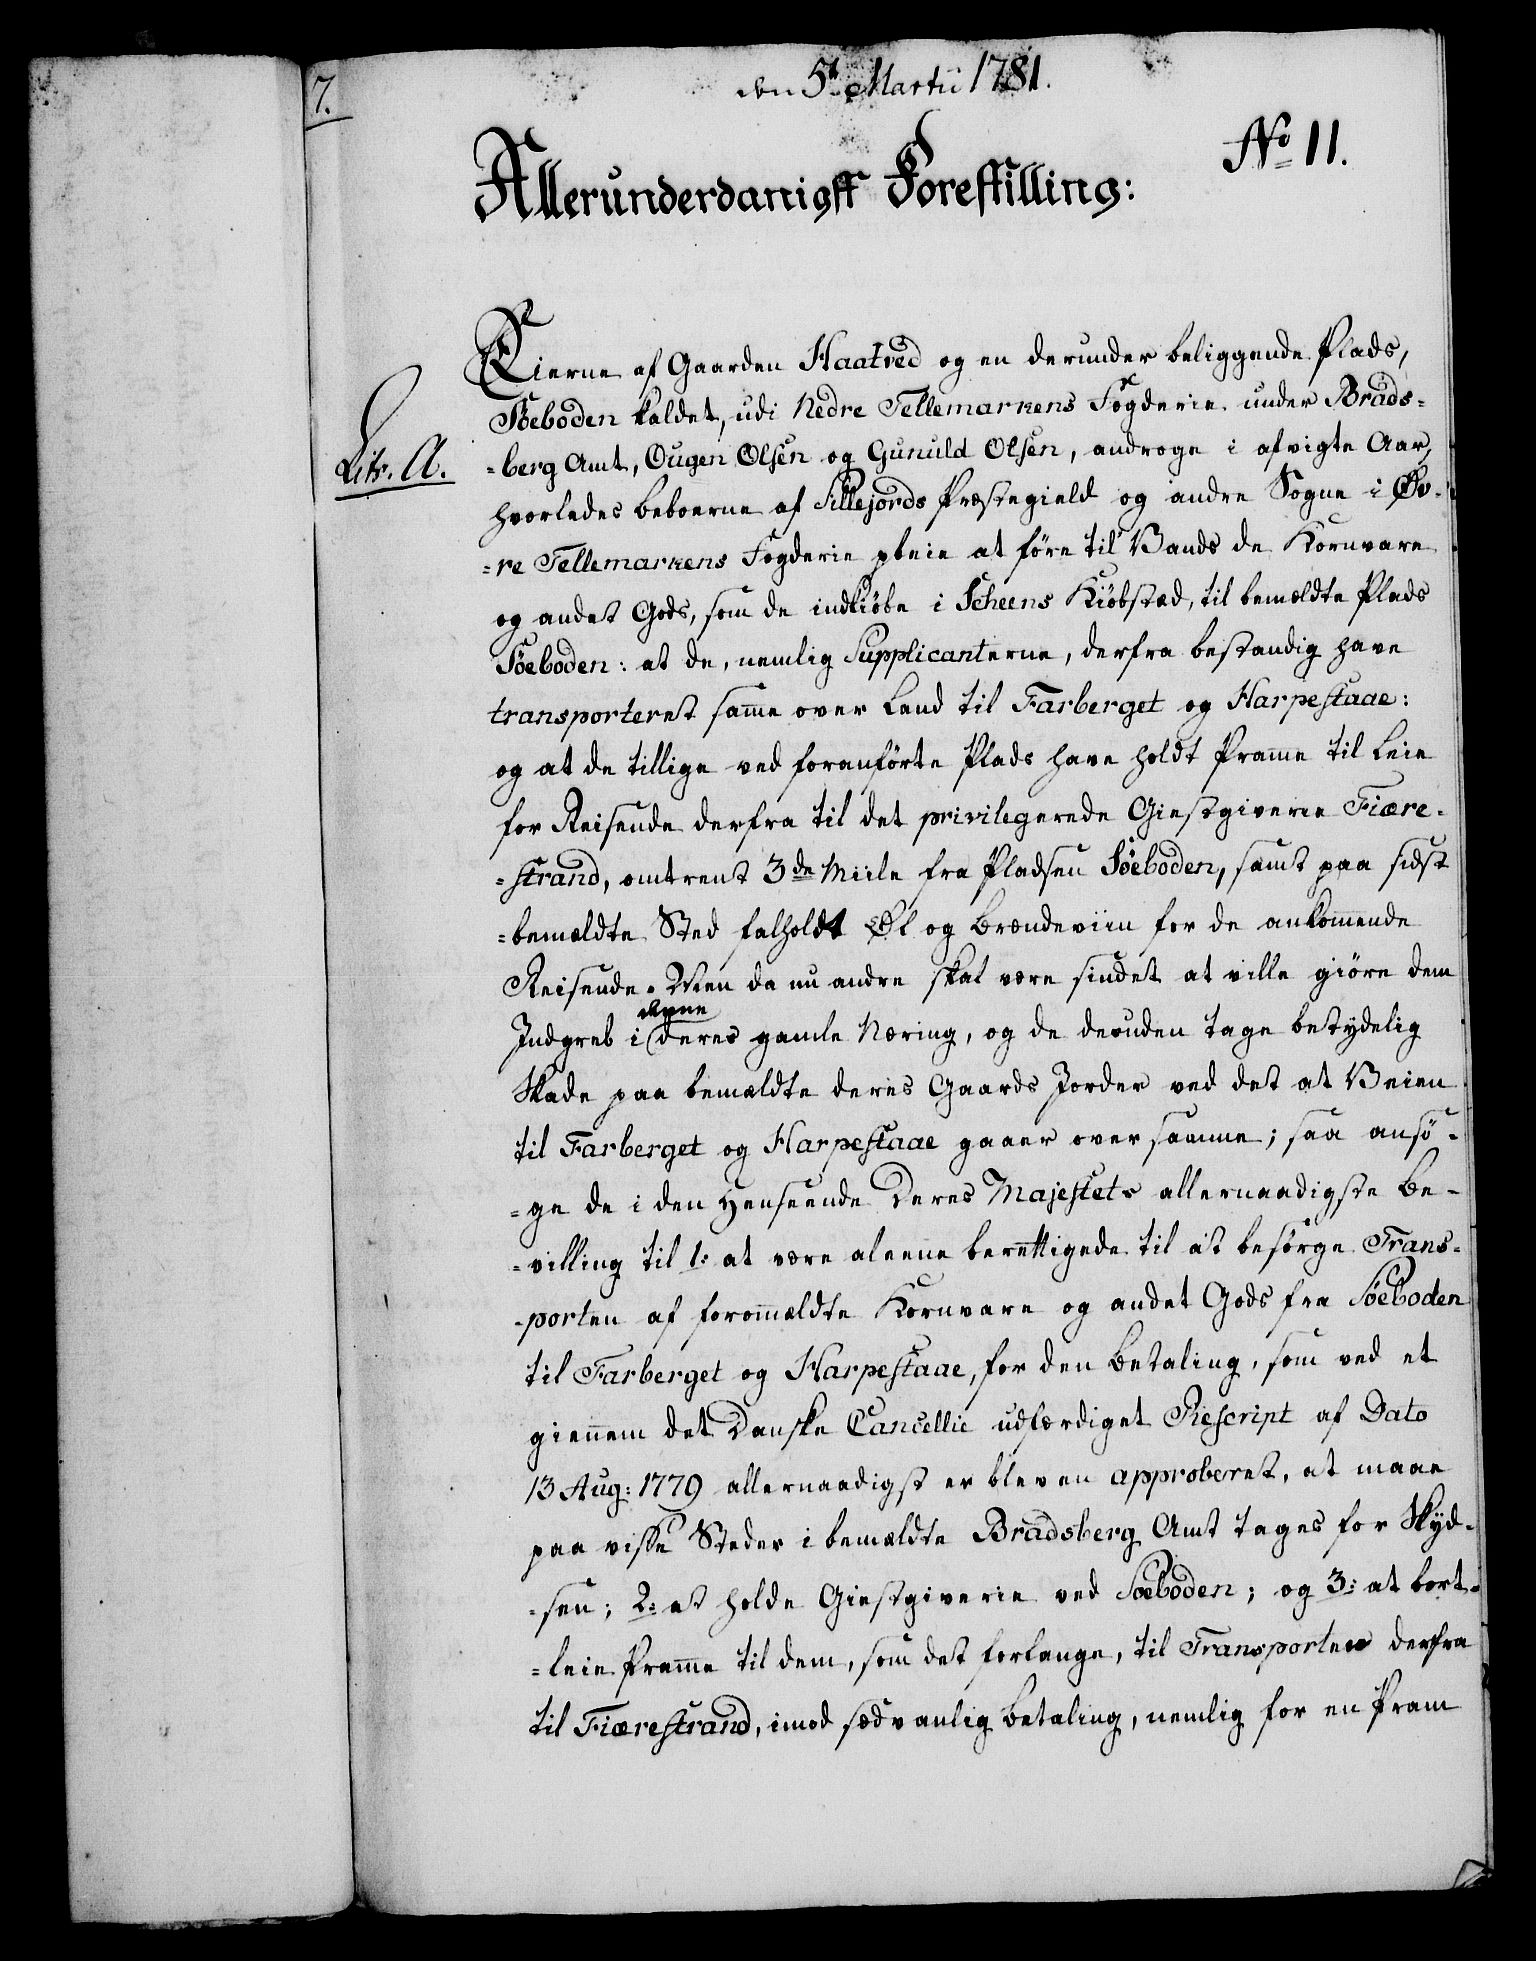 7.
den 5t Martii 1781.
No 11.
Allerunderdanigst Forestilling:
Eierne af Gaarden Haatved og en derunder beliggende Plads,
Söeboden kaldet, udi Nedre Tellemarkens Fogderie under Brads-
Litr. A.
=berg Amt, Ougen Olsen og Gunuld Olsen, androge i afvigte Aar,
hvorledes beboerne af Sillejords Præstegield og andre Sogne i Øv-
=re Tellemarkens Fogderie pleie at före til Vands de Kornvare
og andet Gods, som de indkiöbe i Scheens Kiöbstæd, til bemældte Plads
Söeboden: at de, nemlig Supplicanterne, derfra bestandig have
transporteret samme over Land til Farberget og Harpestaae:
og at de tillige ved foranförte Plads have holdt Pramme til Leie
for Reisende derfra til det privilegerede Giestgiverie Fiære-
=strand, omtrent 3de Miile fra Pladsen Söeboden, samt paa sidst
=bemældte Sted falholdt Øl og Brændeviin for de ankommende
Reisende. Men da nu andre skal være sindet at ville giöre dem
denne
Indgreb i deres gamle Næring, og de desuden tage betydelig
Skade paa bemældte deres Gaards Jorder ved det at Veien
til Farberget og Harpestaae gaaer over samme; saa ansö-
=ge de i den Henseende Deres Majestets allernaadigste Be-
=villing til 1: at være aleene berettigede til at besörge Trans-
=porten af forommældte Kornvare og andet Gods fra Söeboden
til Farberget og Harpestaae, for den Betaling, som ved et
giennem det Danske Cancellie udfærdiget Rescript af Dato
13 Aug: 1779 allernaadigst er bleven approberet, at maae
paa visse Steder i bemældte Bradsberg Amt tages for Skyd-
=sen; 2: at holde Giestgiverie ved Söeboden; og 3: at bort-
=leie Pramme til dem, som det forlange, til Transporten derfra
til Fiærestrand, imod sædvanlig Betaling, nemlig for en Pram